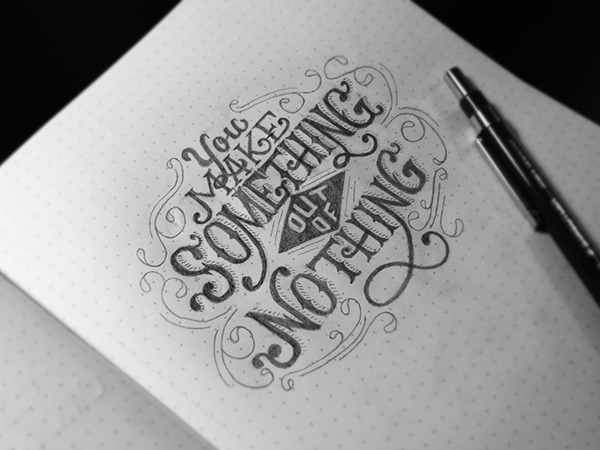 You
MAKE
SOMETHING
OUT
OF
NOTHING